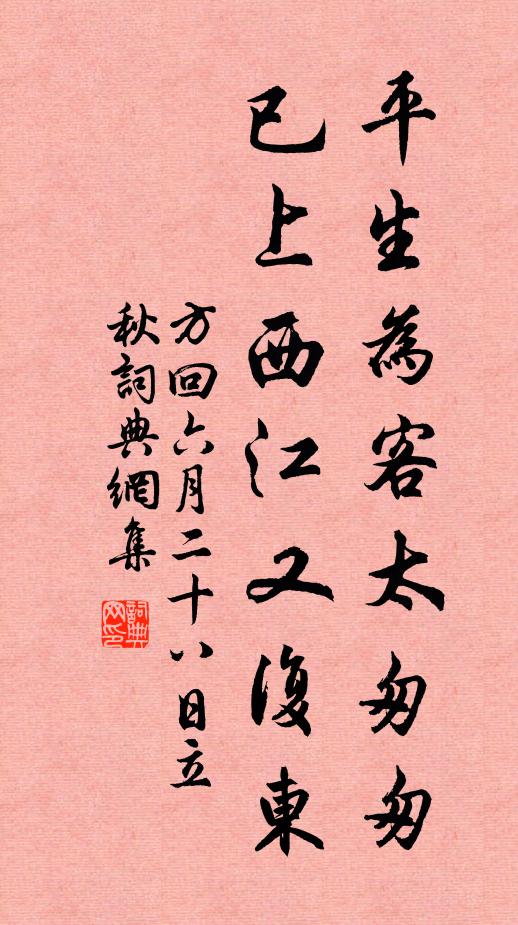 平生為客太匆匆
已上西江又復東
方回六月二十八日立
秋詞典網集
詞典网印